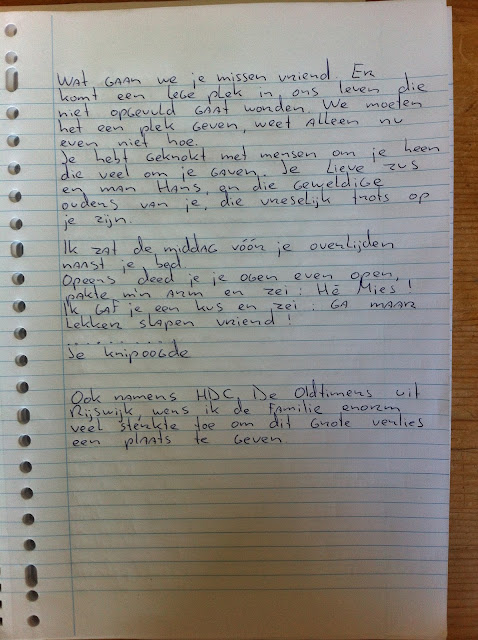 Wat gaan we je missen vriend. Er
komt een lege plek in ons leven die
niet opgevuld gaat worden. We moeten
het een plek geven, weet alleen nu
even niet hoe.
Je hebt geknokt met mensen om je heen
die veel om je gaven. Je lieve zus
en man Hans, en die geweldige
ouders van je, die vreselijk trots op
je zijn.
Ik zat de middag vóór je overlijden
naast je bed.
Opeens deed je je ogen even open,
pakte m'n arm en zei: Hé Mies!
Ik gaf je een kus en zei: Ga maar
lekker slapen vriend!
. . . . . . . . . .
Je knipoogde
Ook namens HDC, De Oldtimers uit
Rijswijk, wens ik de familie enorm
veel sterkte toe om dit grote verlies
een plaats te geven